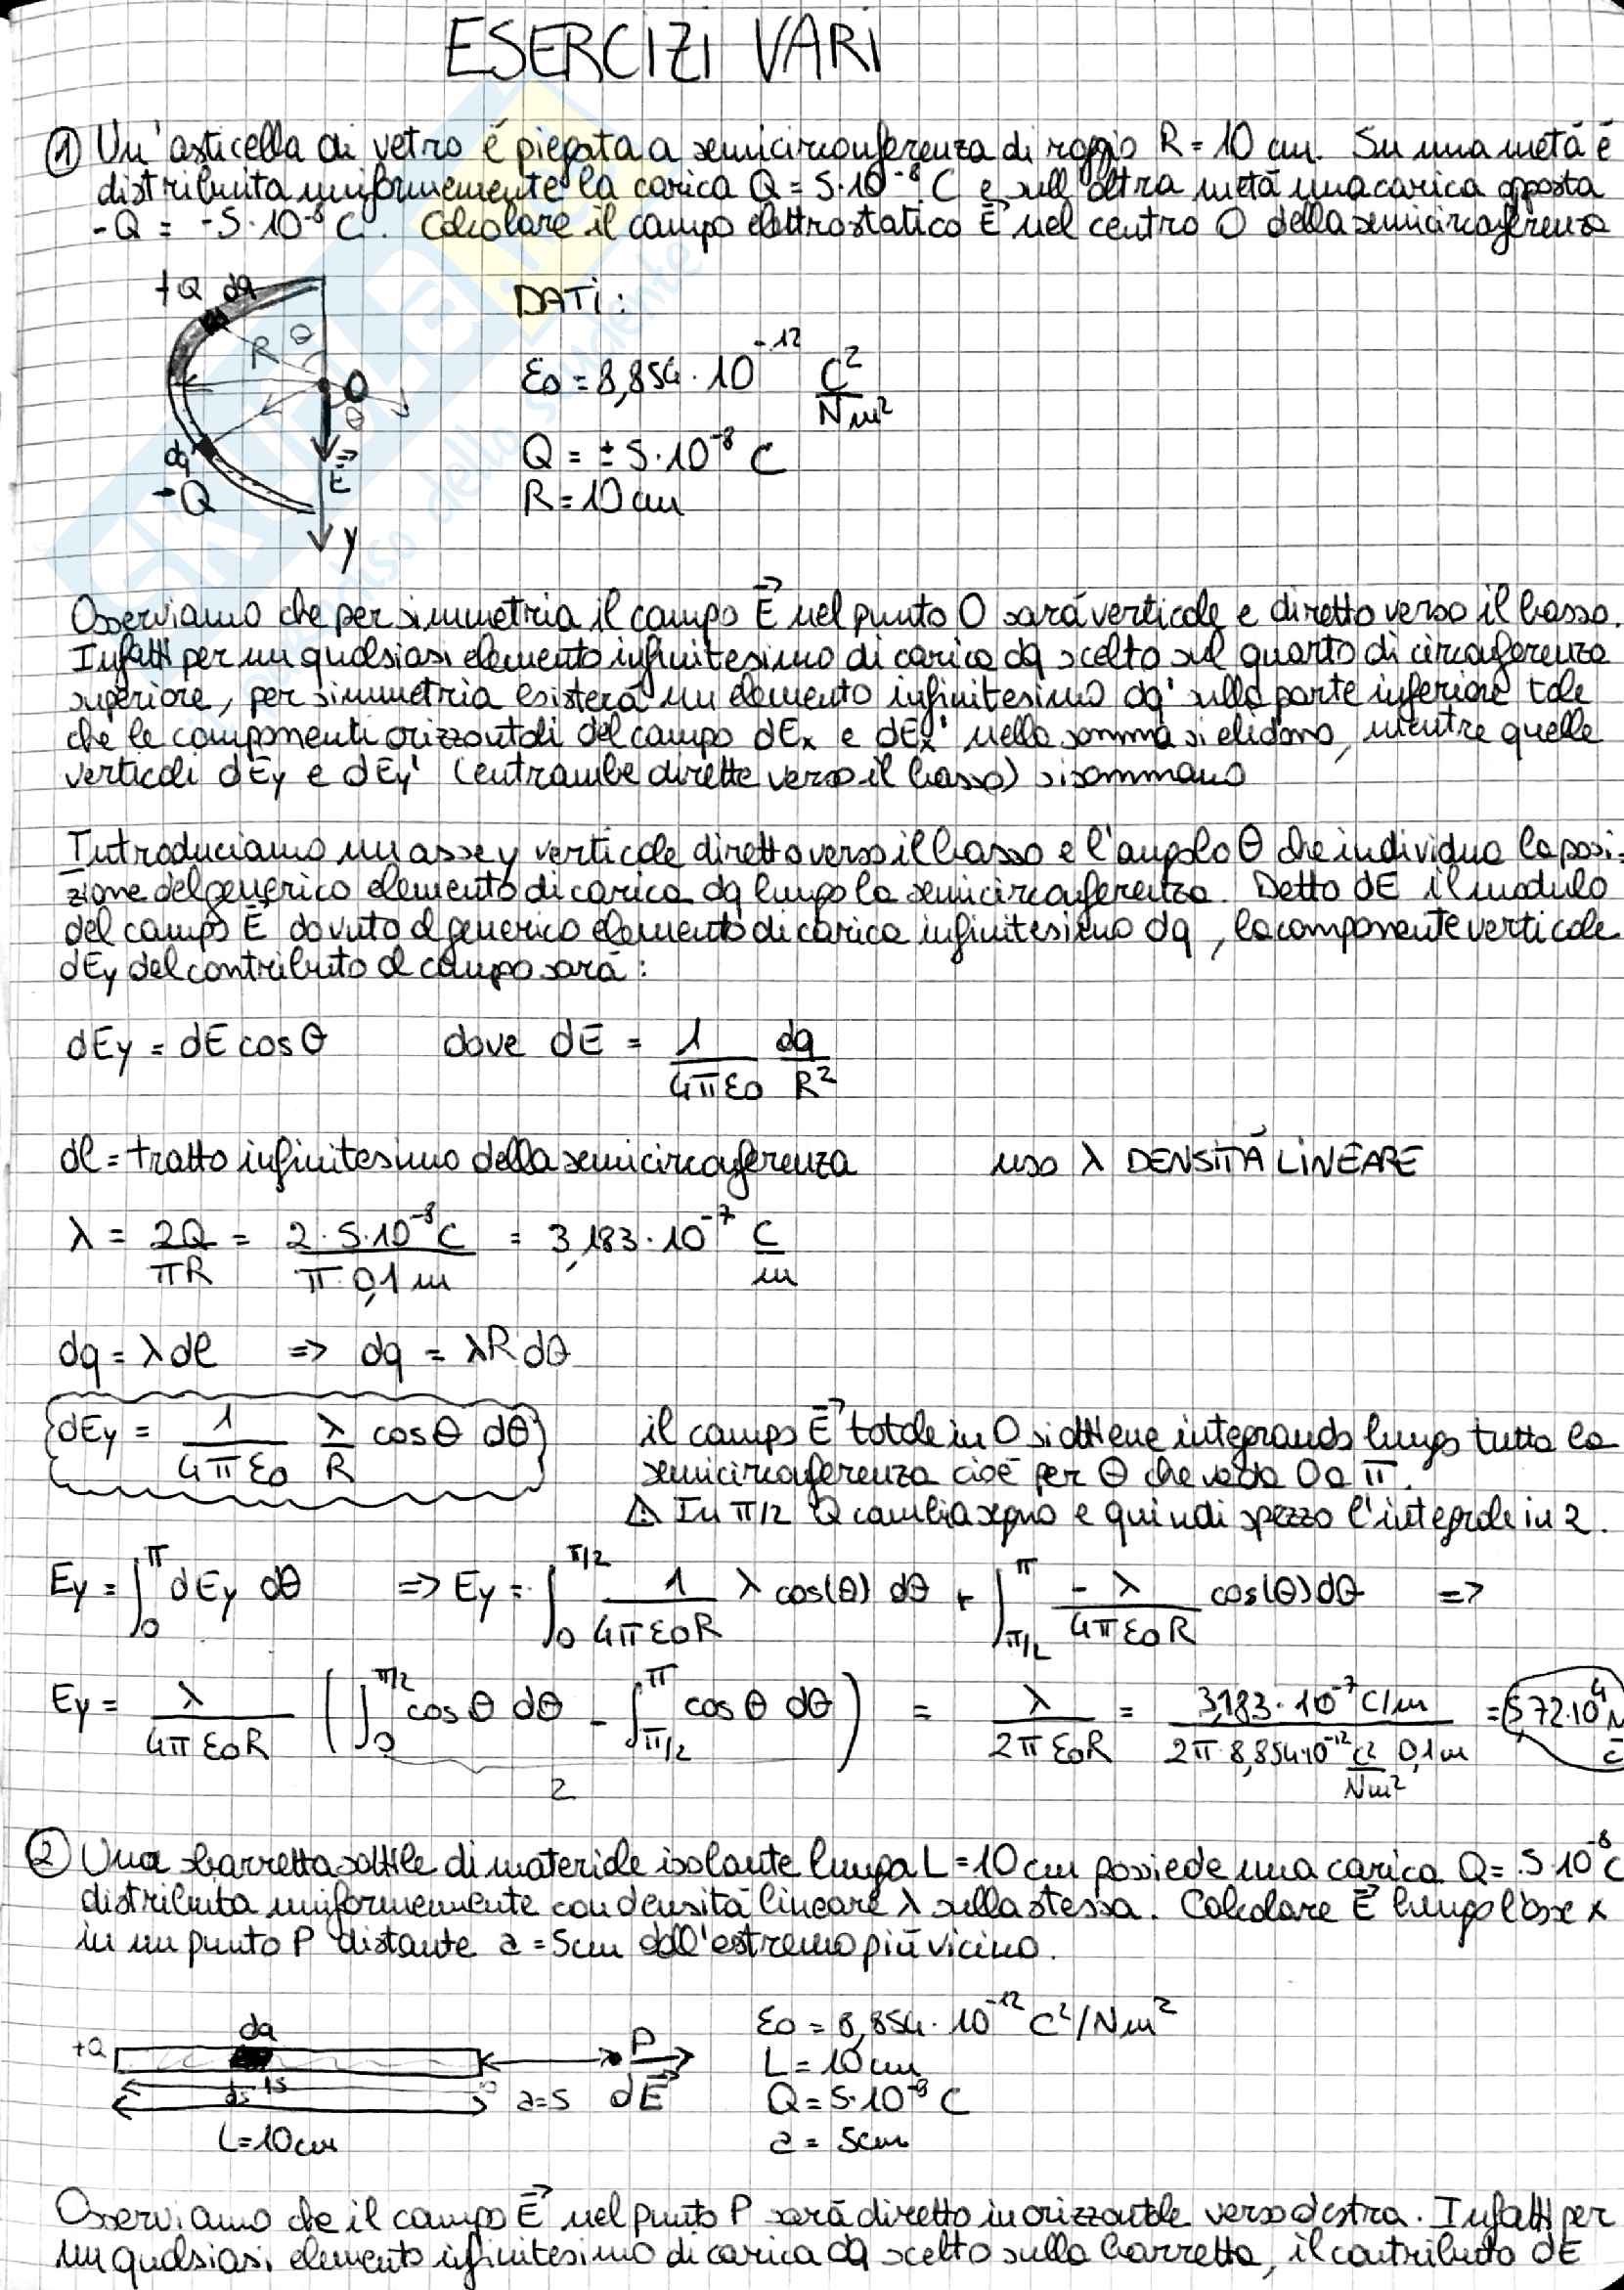 ESERCIZI VARI
① Un'asticella di vetro è piegata a semicirconferenza di raggio R = 10 cm. Su una metà è
distribuita uniformemente la carica Q = 5·10⁻⁸ C e sull'altra metà una carica opposta
-Q = -5·10⁻⁸ C. Calcolare il campo elettrostatico E⃗ nel centro O della semicirconferenza
+Q dq
DATI:
R θ
O
ε0 = 8,854·10⁻¹² C²/Nm²
θ
dq
E⃗
Q = ±5·10⁻⁸ C
-Q
R = 10 cm
y
Osserviamo che per simmetria il campo E⃗ nel punto O sarà verticale e diretto verso il basso.
Infatti per un qualsiasi elemento infinitesimo di carica dq scelto sul quarto di circonferenza
superiore, per simmetria esisterà un elemento infinitesimo dq' sulla parte inferiore tale
che le componenti orizzontali del campo dEx e dEx' nella somma si elidono, mentre quelle
verticali dEy e dEy' (entrambe dirette verso il basso) si sommano
Introduciamo un asse y verticale diretto verso il basso e l'angolo θ che individua la posi-
zione del generico elemento di carica dq lungo la semicirconferenza. Detto dE il modulo
del campo E⃗ dovuto al generico elemento di carica infinitesimo dq, la componente verticale
dEy del contributo al campo sarà:
dEy = dE cosθ dove dE = 1/4πε0 dq/R²
dl = tratto infinitesimo della semicirconferenza uso λ DENSITÀ LINEARE
λ = 2Q/πR = 2·5·10⁻⁸C/π·0,1m = 3,183·10⁻⁷ C/m
dq = λdl => dq = λRdθ
dEy = 1/4πε0 λ/R cosθ dθ il campo E⃗ totale in O si ottiene integrando lungo tutta la
semicirconferenza cioè per θ che va da 0 a π.
⚠ In π/2 Q cambia segno e quindi spezzo l'integrale in 2.
Ey = ∫₀^π dEy dθ => Ey = ∫₀^π/2 1/4πε0R λ cos(θ) dθ + ∫π/2^π -λ/4πε0R cos(θ)dθ =>
Ey = λ/4πε0R (∫₀^π/2 cosθ dθ - ∫π/2^π cosθ dθ) = λ/2πε0R = 3,183·10⁻⁷C/m / 2π·8,854·10⁻¹² C²/Nm² 0,1m = 5,72·10⁴ N/C
2
② Una sbarretta sottile di materiale isolante lunga L = 10 cm possiede una carica Q = 5·10⁻⁸ C
distribuita uniformemente con densità lineare λ sulla stessa. Calcolare E⃗ lungo l'asse x
in un punto P distante a = 5cm dall'estremo più vicino.
ε0 = 8,854·10⁻¹² C²/Nm²
+Q dq P
L = 10 cm
ds a=5 dE⃗
Q = 5·10⁻⁸ C
L = 10cm
a = 5cm
Osserviamo che il campo E⃗ nel punto P sarà diretto in orizzontale verso destra. Infatti per
un qualsiasi elemento infinitesimo di carica dq scelto sulla barretta, il contributo dE